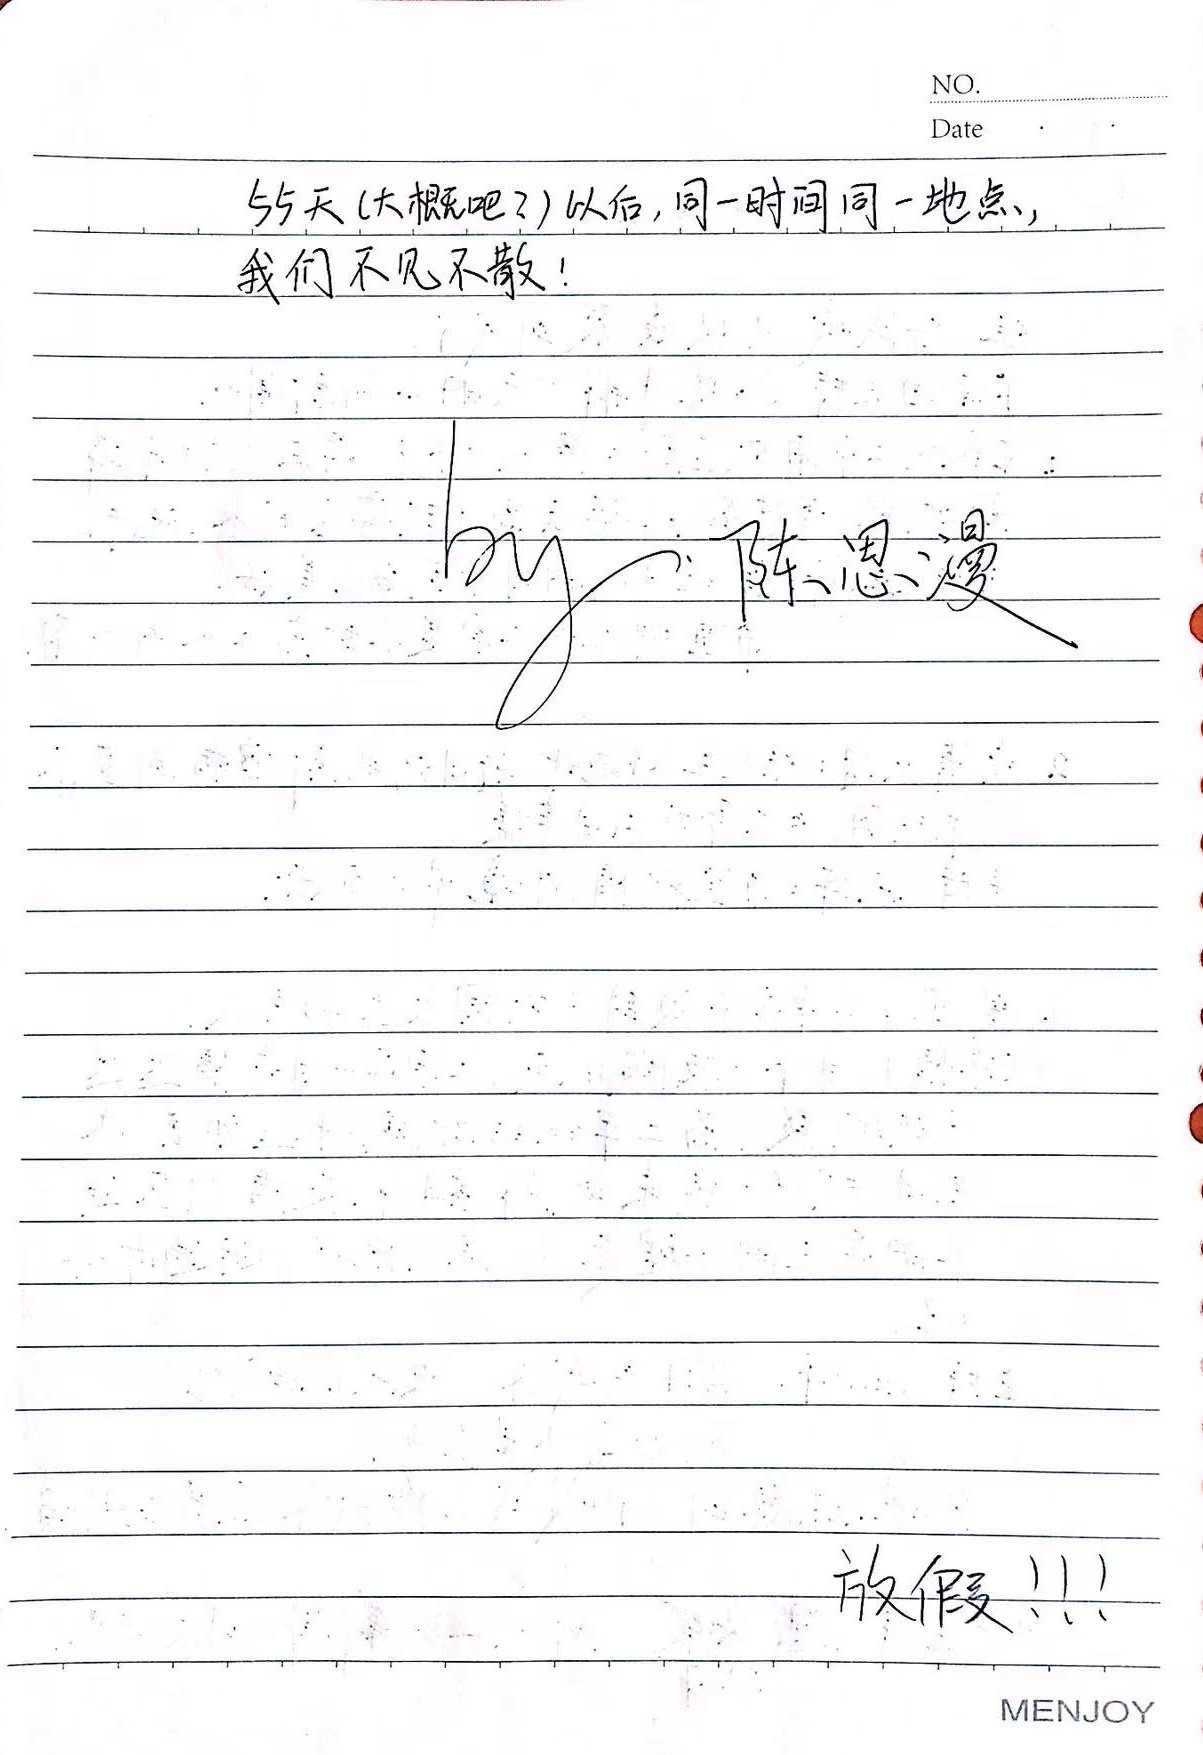 NO.
Date
55天(大概吧?)以后,同一时间同一地点,
我们不见不散!
by. 陈思漫
放假!!!
MENJOY